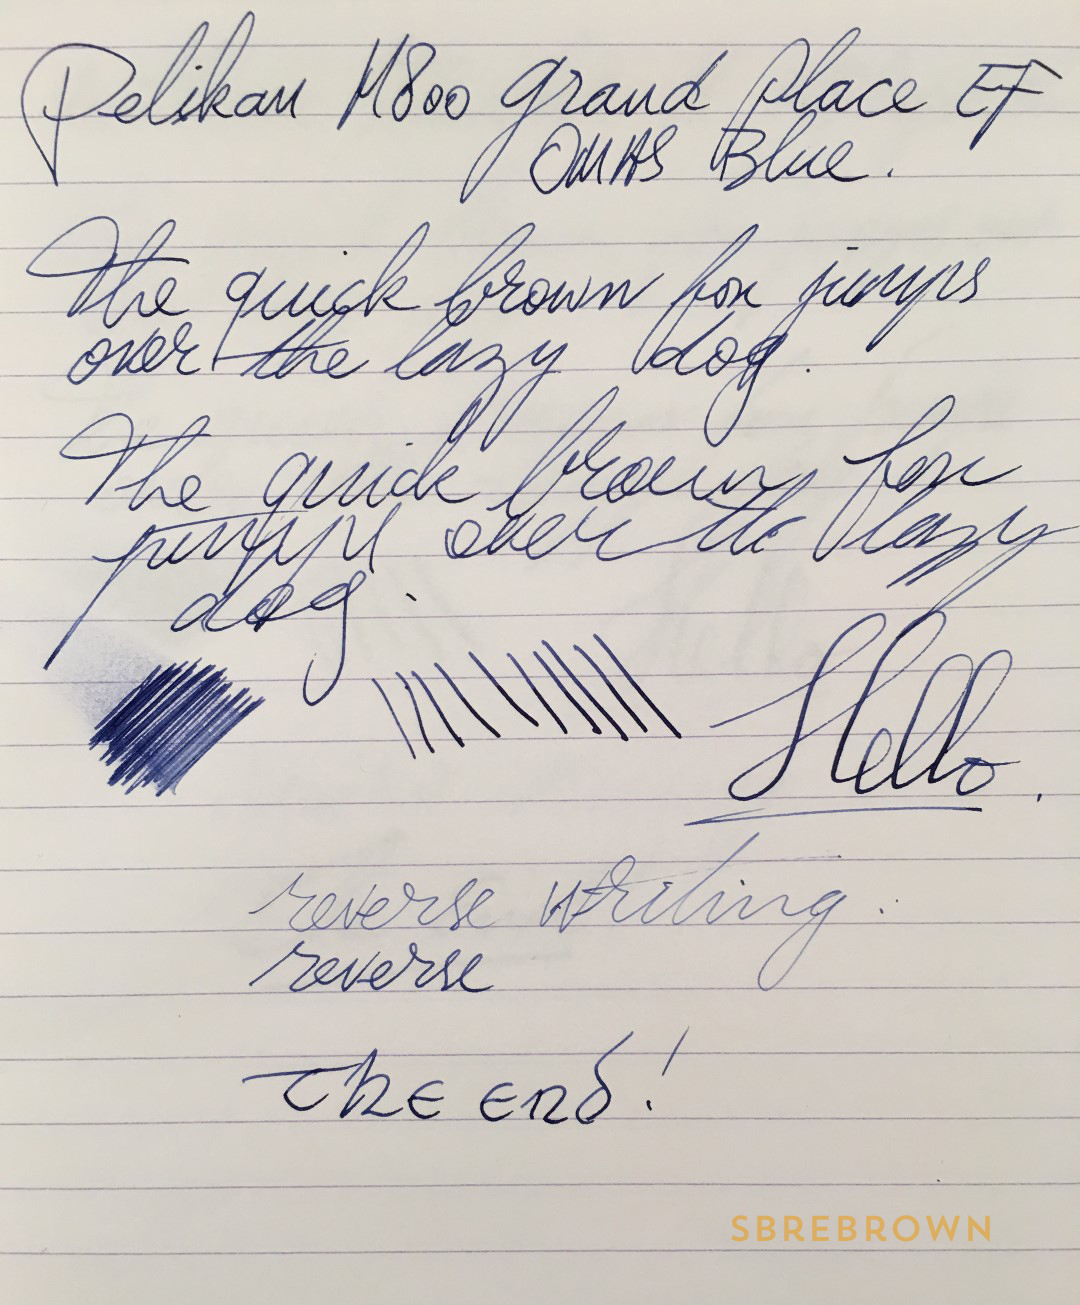 Pelikan M800 Grand Place EF
OMAS Blue.
The quick brown fox jumps
over the lazy dog.
The quick brown fox
jumps over the lazy
dog.
Hello.
reverse writing.
reverse
The End!
SBREBROWN